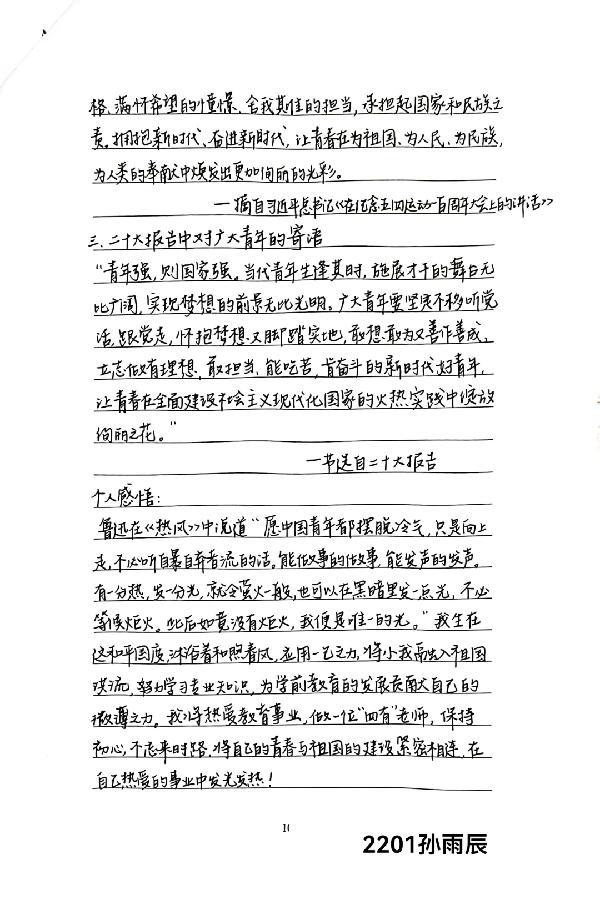 格、满怀希望的憧憬、舍我其谁的担当，承担起国家和民族之
责。拥抱新时代、奋进新时代，让青春在为祖国、为人民、为民族，
为人类的奉献中焕发出更加绚丽的光彩。
——摘自习近平总书记《在纪念五四运动一百周年大会上的讲话》
三、二十大报告中对广大青年的寄语
“青年强，则国家强。当代青年生逢其时，施展才干的舞台无
比广阔，实现梦想的前景无比光明。广大青年要坚定不移听党
话，跟党走，怀抱梦想又脚踏实地，敢想敢为又善作善成，
立志做有理想、敢担当、能吃苦、肯奋斗的新时代好青年，
让青春在全面建设社会主义现代化国家的火热实践中绽放
绚丽之花。”
——节选自二十大报告
个人感悟：
鲁迅在《热风》中说道“愿中国青年都摆脱冷气，只是向上
走，不必听自暴自弃者流的话。能做事的做事，能发声的发声。
有一分热，发一分光，就令萤火一般，也可以在黑暗里发一点光，不必
等候炬火。此后如竟没有炬火，我便是唯一的光。”我生在
这和平国度，沐浴着和煦春风，应用一己之力，将小我融入祖国
洪流，努力学习专业知识，为学前教育的发展贡献自己的
微薄之力。我将热爱教育事业，做一位“四有”老师，保持
初心，不忘来时路，将自己的青春与祖国的建设紧密相连，在
自己热爱的事业中发光发热！
2201孙雨辰